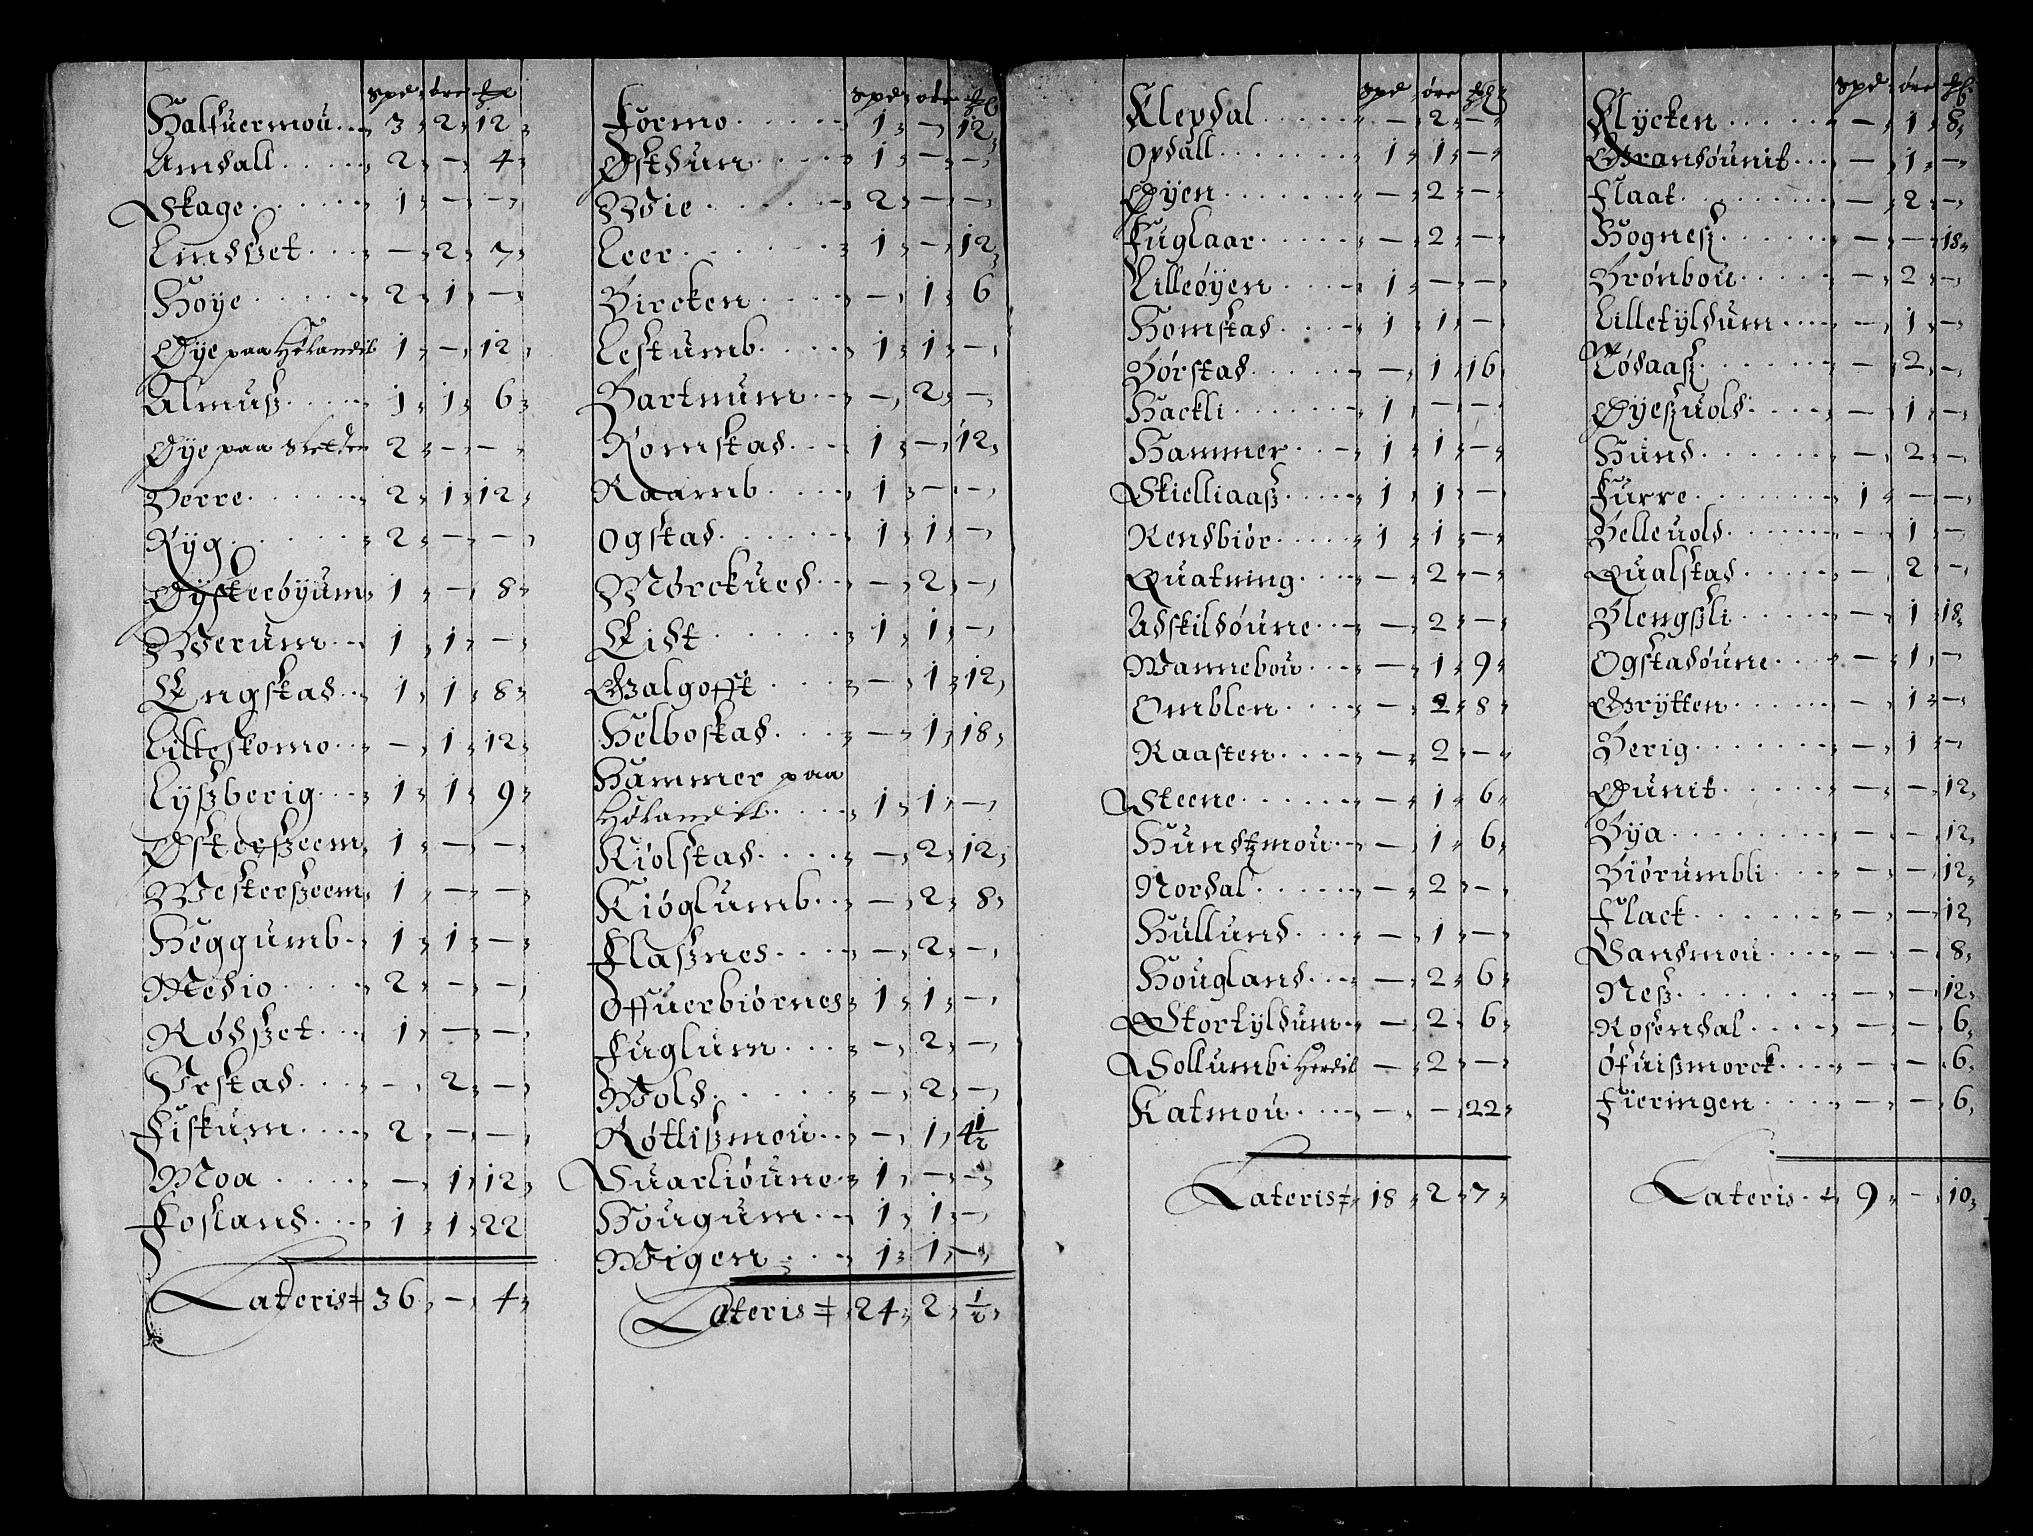 Spd øre
Halfuermou 3 2 12
Amdall 2 — 4
Skage 1 — —
Lindszet — 2 7
Høye 2 1 —
Øye paa Hølandit 1 — 12
Almusz 1 1 6
Øye paa 2 — —
Verre 2 1 12
Ryg 2 — —
Øysterøyum 1 — 8
Werum 1 1 —
Engstad 1 1 8
Litleskomo — 1 12
Lyszberig 1 1 9
Østerszeem 1 — —
Westerszeem 1 — —
Heggumb 1 1 —
Medio 2 — —
Rødszet 1 — —
Vrstad — 2 —
Fiskum 2 — —
Moa — 1 12
Fosland 1 1 22
Lateris 36 — 4
Spd øre
Formo 1 — 12
Østdun 1 — —
Wøie 2 — —
Leer 1 — 12
Bircken — 1 6
Leskumb 1 1 —
Bartnum — 2 —
Romstad 1 — 12
Raamb 1 — —
Ogstad 1 1 —
Mørckued — 2 —
Eidt 1 1 —
Galgofft — 1 12
Helbostad — 1 18
Hammer paa
Hølandit 1 1 —
Kiølstad — 2 12
Kiøglumb — 2 8
Flasznes — 2 —
Offuerbiørnes 1 1 —
Fuglum — 2 —
Wold — 2 —
Røtliszmou — 1 4½
Suarliøune 1 — —
Hougum 1 1 —
Wigen 1 1 —
Lateris 24 2 ½
Spd øre
Klepdal — 2 —
Opdall 1 1 —
Øyen — 2 —
Fuglaar — 2 —
Lilleøyen 1 — —
Homstad 1 1 —
Børstad — 1 16
Hackli 1 — —
Hammer 1 1 —
Skielliaasz 1 1 —
Rendbiør 1 1 —
Quatning — 2 —
Adskildøune — 2 —
Wannebou — 1 9
Omblen — 2 8
Raasten — 2 —
Steene — 1 6
Hundtzmou — 1 6
Nordal — 2 —
Hullund — 1 —
Hougland — 2 6
Storkyldum — 2 6
Sollumb i Herdit — 2 —
Katmou — — 22
Lateris 18 2 7
Spd øre
Klycken — 1 8
Grandøunit — 1 —
Flaat — 2 —
Hognesz — — 18
Brønbou — 2 —
Lillekyldum — 1 —
Rødaasz — 2 —
Øyeszuold — 1 —
Hund — 2 —
Furre 1 — —
Belleuold — 1 —
Qualstad — 2 —
Blengszli — 1 18
Ogstadøune — 1 —
Grytten — 1 —
Berig — 1 —
Øunit — — 12
Bya — — 12
Biørumbli — — 12
Flack — — 12
Sandmou — — 8
Nesz — — 12
Rosendal — — 6
Øfuiszmorck — — 6
Fieringen — — 6
Lateris 9 — 10